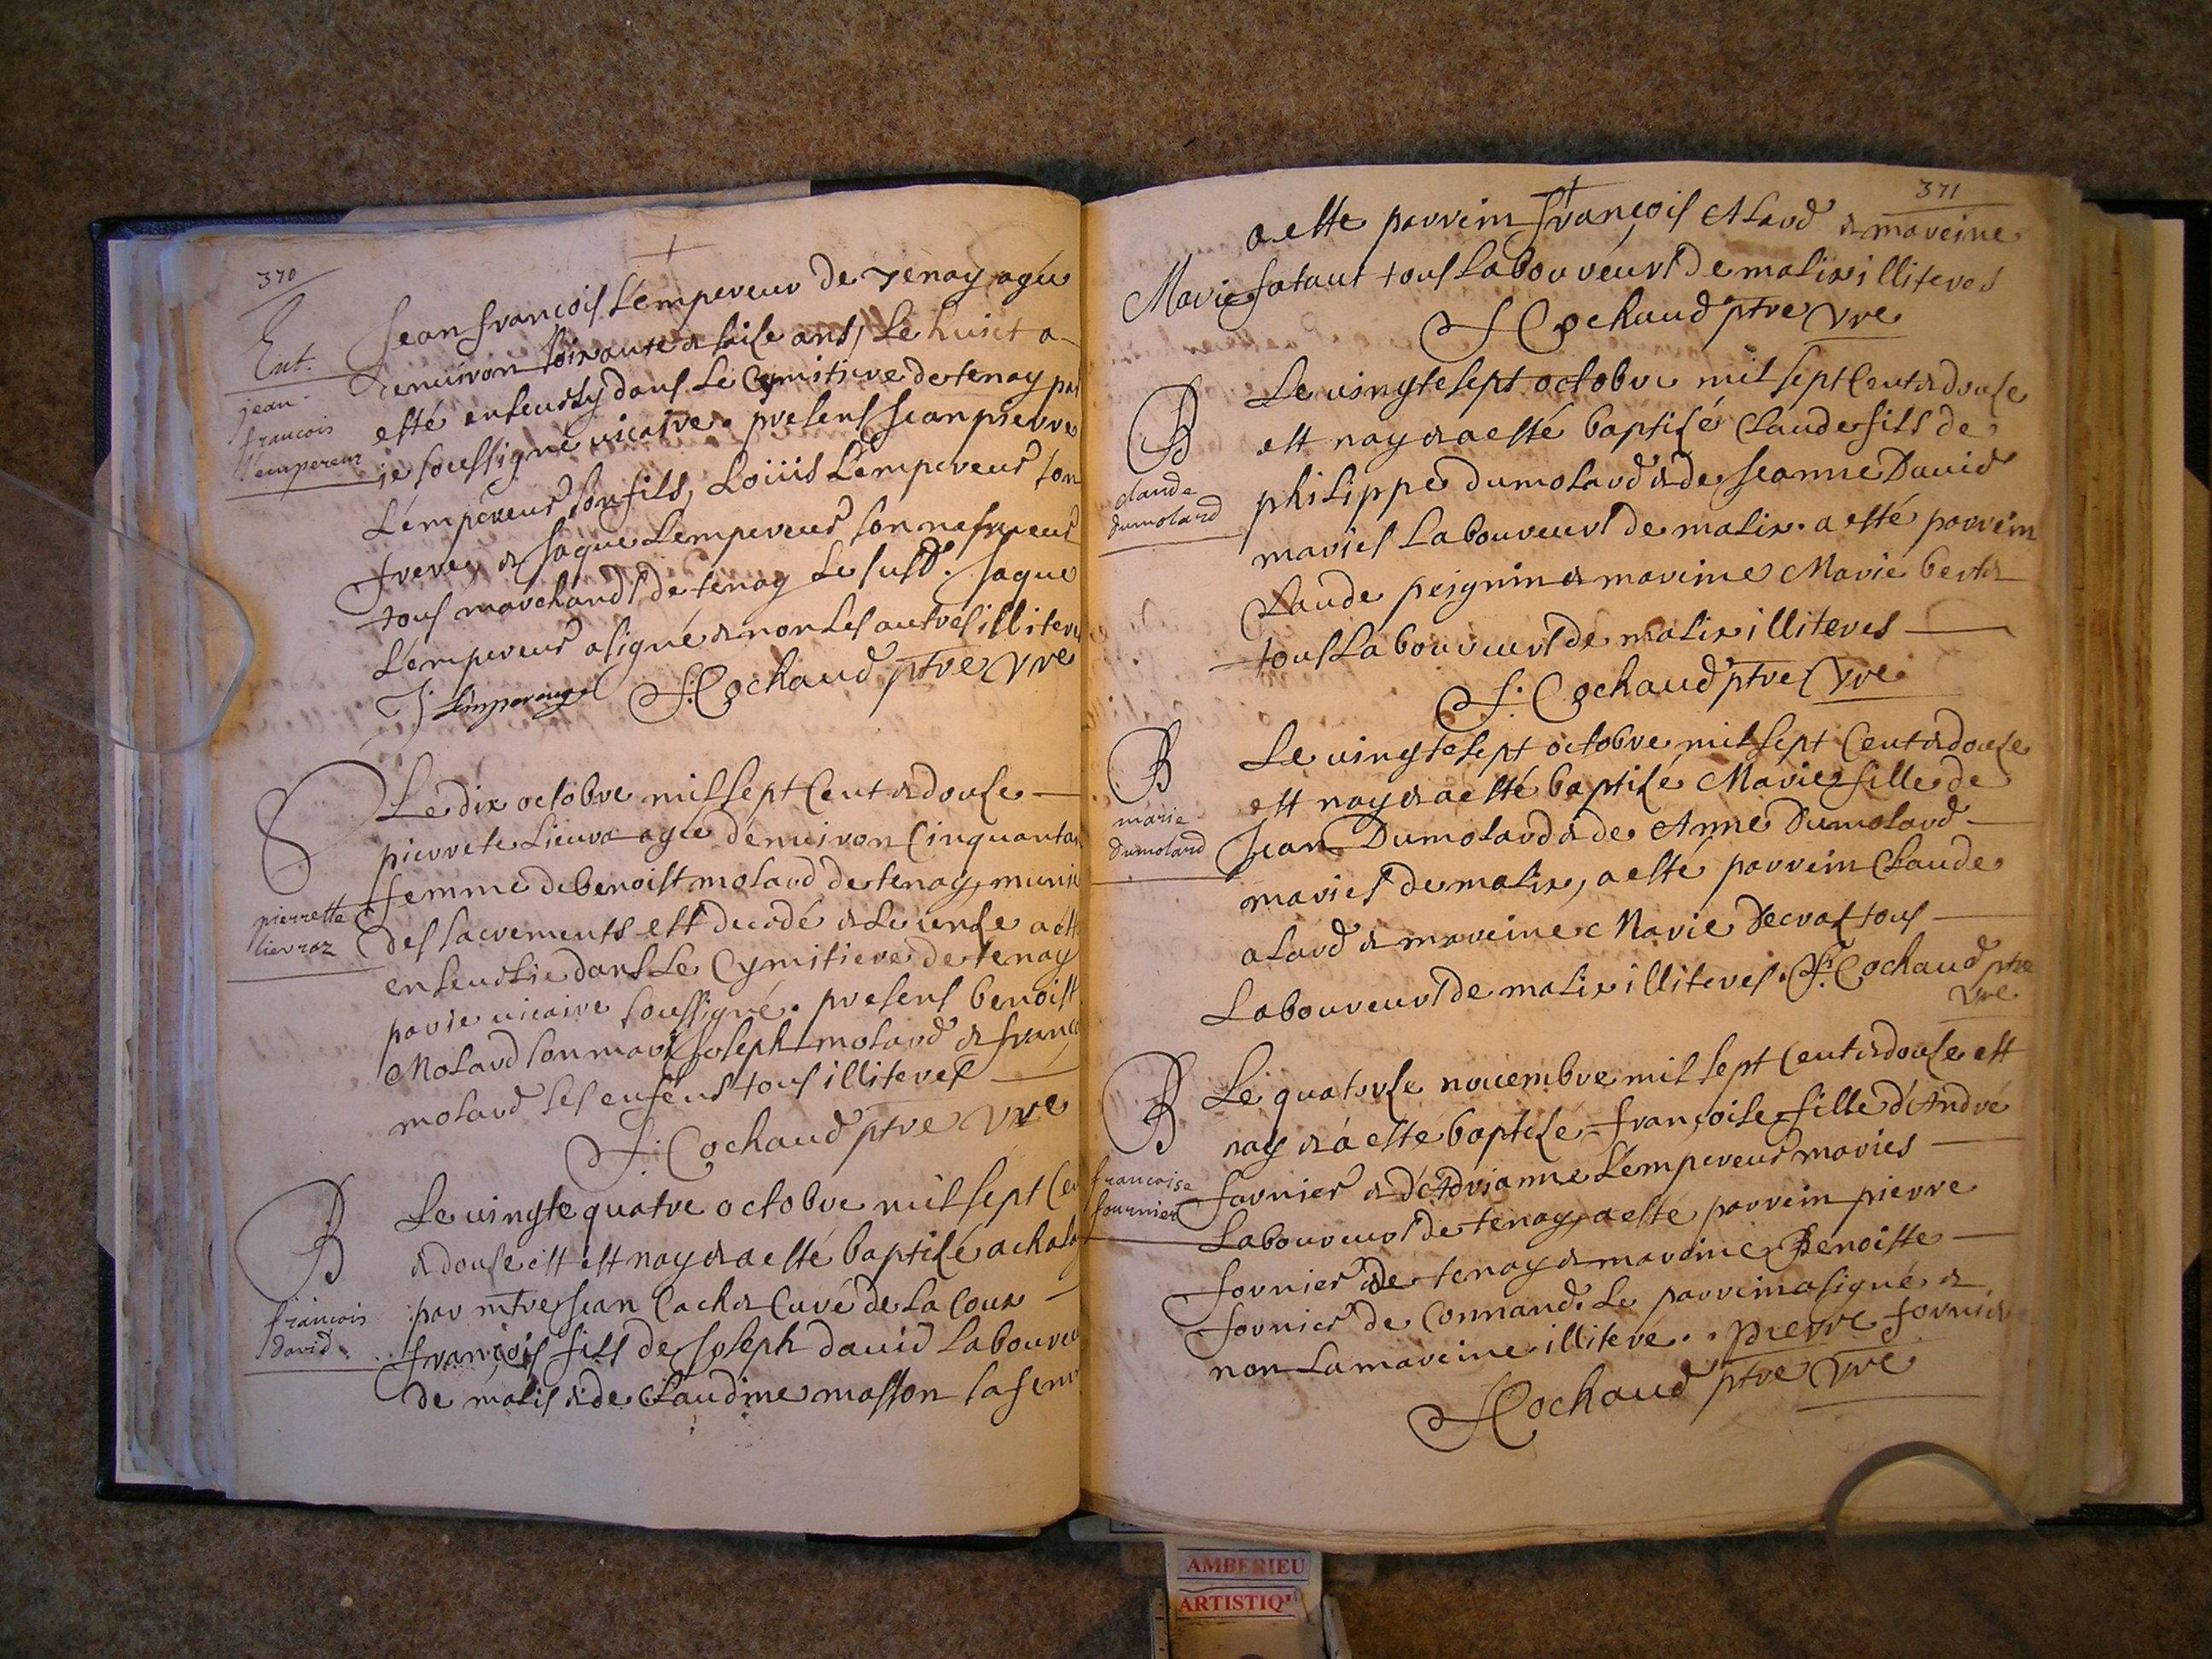 370
Ent.
jean
francois
L'empereur
Jean francois L'empereur de Tenay agée
d'enuiron soixante & saise ans, Le huict a
esté enseuely dans Le Cymitiere de tenay par
je soussigné vicaire. present Jean pierre
L'empereur son fils, Loüis L'empereur son
frere, & Jaque L'empereur son nefueur
tous marchands de tenay Le susd. Jaque
L'empereur a signé & non Les autres illiteres
J Lempereur f. Cochaud ptre vre
pierrette
lievraz
Le dix octobre mil sept Cent & douse
pierrete Lieura agée d'enuiron Cinquante
femme de benoist molard de tenay, munie
des sacrements est decedé & Le unse a esté
enseuelie dans Le Cymitiere de tenay
par ie vicaire soussigné. present benoist
Molard son mari Joseph molard & franço
molard ses enfens tous illiteres
f. Cochaud ptre vre
B
francois
david
Le uingte quatre octobre mil sept Cen
& douse est est nay & a esté baptisé a chalay
par mtre Jean Cachet Curé de La Coux
françois fils de Joseph dauid Laboureur
de malis & de Claudine masson sa femme
371
a esté parrein François ALard & mareine
Marie fataut tous Laboureurs de malix illiteres
f Cochaud ptre vre
B
claude
dumolard
Le uingte sept octobre mil sept Cent & douse
est nay & a esté baptisé Claude fils de
philippe dumolard & de Jeanne Dauid
maries Laboureurs de malix. a esté parrein
Claude peignin & mareine Marie bertet
tous Laboureurs de malix illiteres
f. Cochaud ptre vre
B
marie
Dumolard
Le uingte sept octobre mil sept Cent & douse
est nay & a esté baptisé Marie fille de
Jean Dumolard & de Anne Dumolard
maries de malix, a esté parrein Claude
alard & mareine Marie Decras tous
Laboureurs de malix illiteres. f. Cochaud ptre
vre
B
francoise
fournier
Le quatorse nouembre mil sept Cent & douse est
nay & a esté baptisé françoise fille d'André
fornier & d'Adrianne L'empereur maries
Laboureurs de tenay, a esté parrein pierre
fornier de tenay & mareine Benoiste
fornier de Connand. Le parrein a signé &
non La mareine illiteré. pierre fornier
f Cochaud ptre vre
AMBERIEU
ARTISTIQ